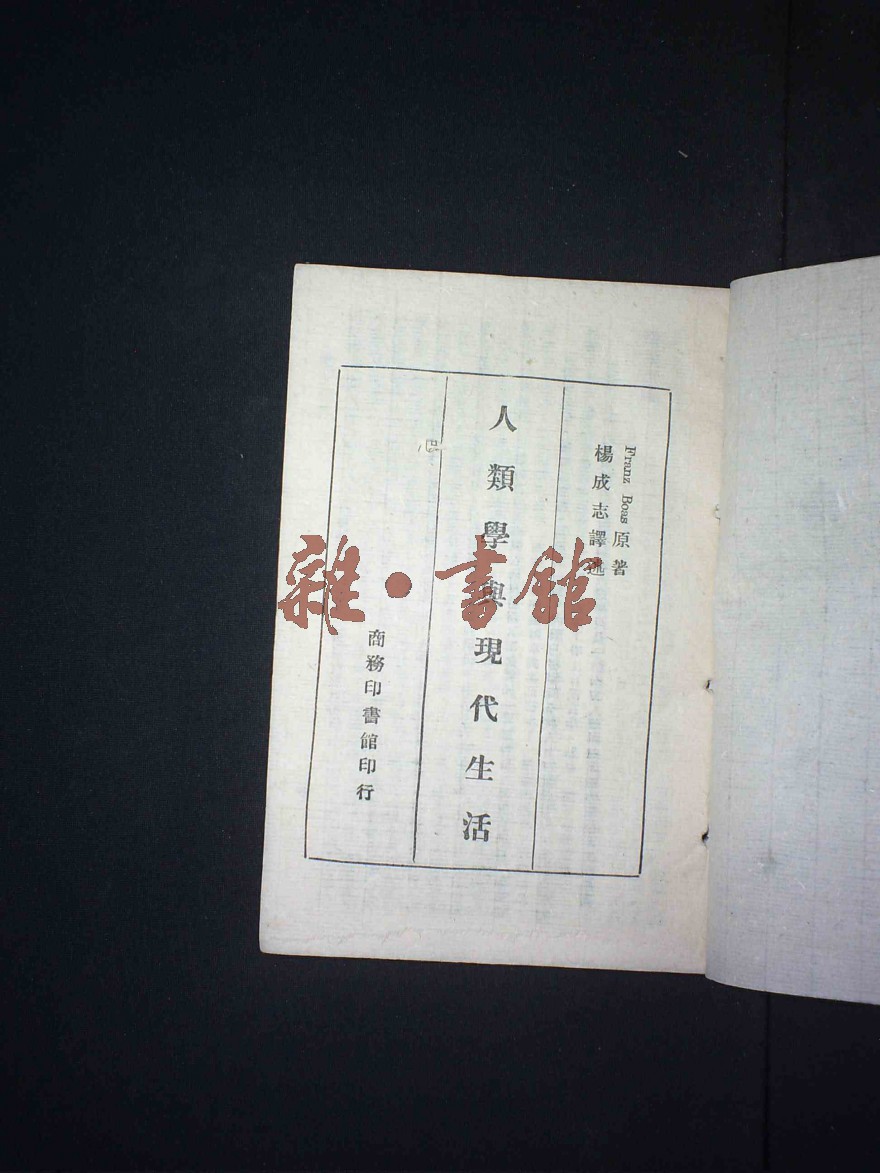 Franz Boas 原著
楊成志譯述
人類學與現代生活
商務印書館印行
雜·書館